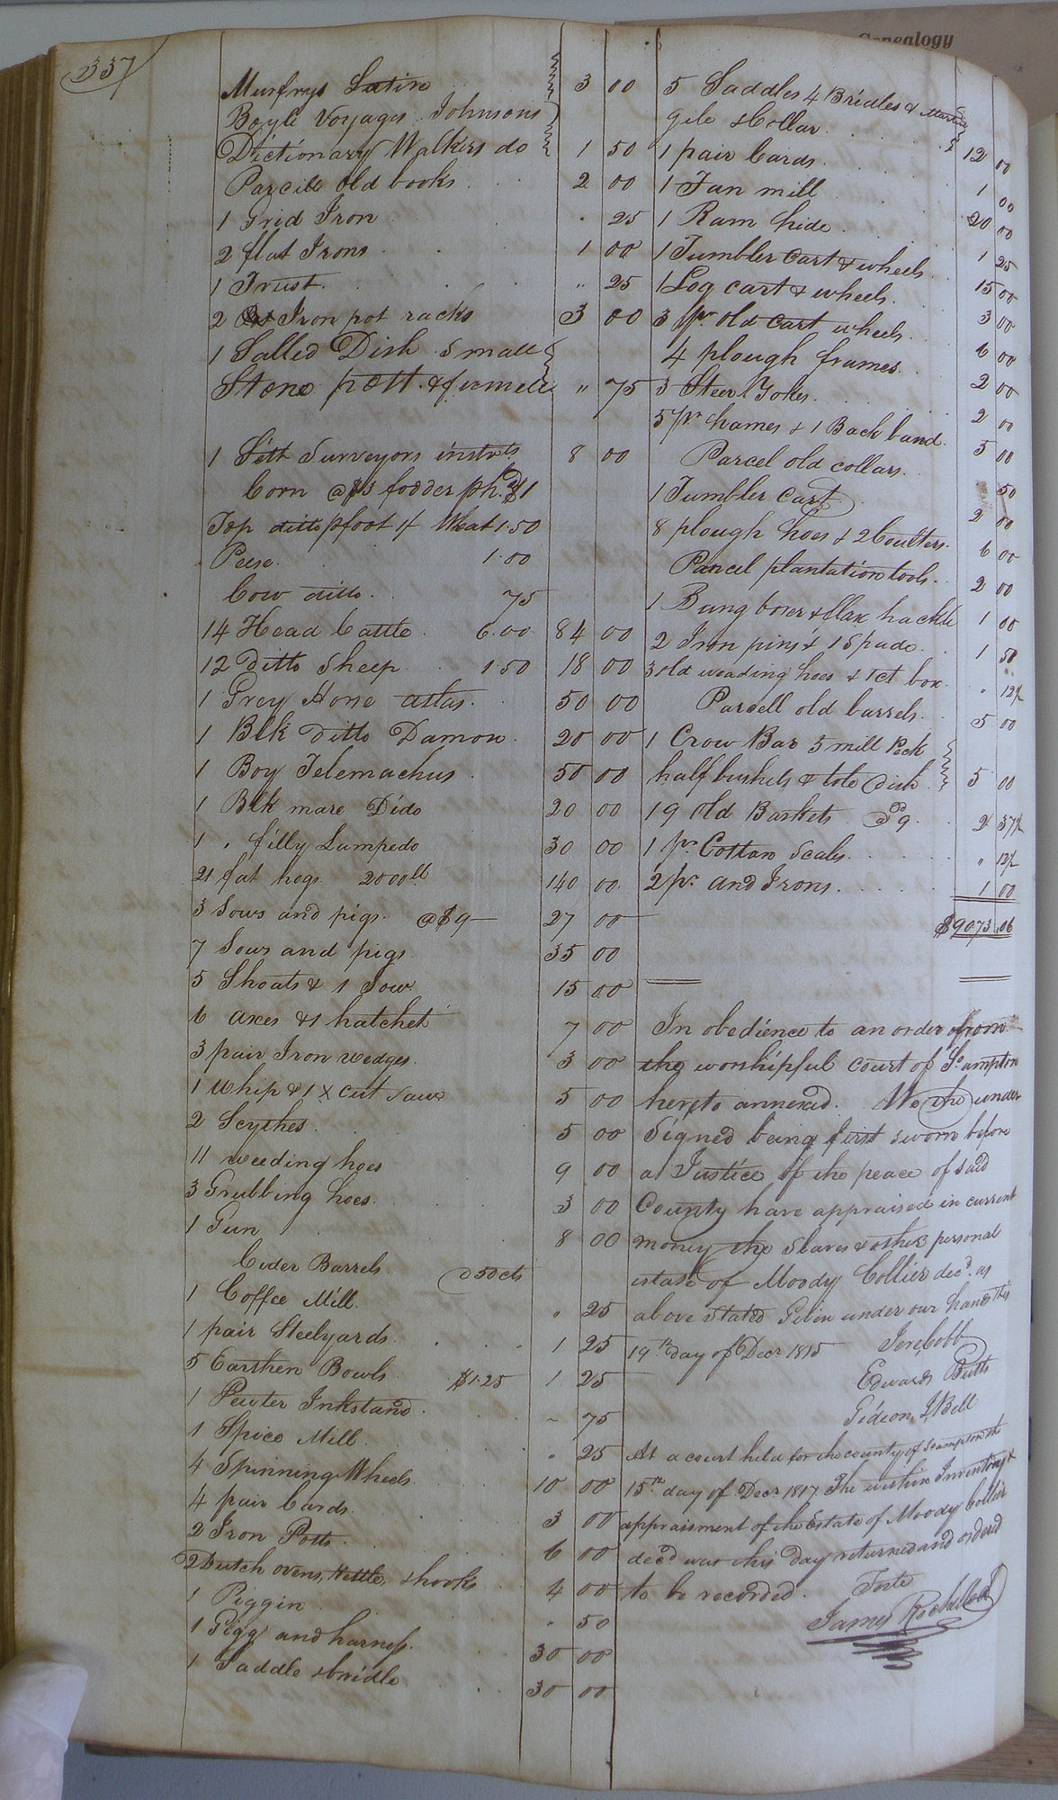 337
Genealogy
Murfrys Latin 3 00
Boyle Voyages Johnsons
Dictionary Walkers do 1 50
Parcile old books 2 00
1 Grid Iron 25
2 flat Irons 1 00
1 Trust " 25
2 Iron pot racks 3 00
1 Salled Dish Small
Stone pott & funnell " 75
1 Sett Surveyors instrts 8 00
Corn @ $3 fodder ph. $1
Top ditto foot If Wheat 1.50
Pease 1.00
Cow ditto 75
14 Head Cattle 6.00 84 00
12 Ditto Sheep 1.50 18 00
1 Grey Horse atlas 50 00
1 Blk Ditto Damon 20 00
1 Boy Telemachus 50 00
1 Blk mare Dido 20 00
1 " filly Lumpedo 30 00
21 fat hogs 2000 lb 140 00
3 Sows and pigs @ $9 27 00
7 Sows and pigs 35 00
5 Shoats & 1 Sow 15 00
6 axes & 1 hatchet 7 00
3 pair Iron wedges 3 00
1 Whip & 1 X cut Saw 5 00
2 Scythes 5 00
11 weeding hoes 9 00
3 Grubbing hoes 3 00
1 Gun 8 00
Cider Barrels @ 50 cts
1 Coffee Mill " 25
1 pair Steelyards 1 25
5 Earthen Bowls $1.25 1 25
1 Pewter Inkstand 75
1 Spice Mill " 25
4 Spinning Wheels 10 00
4 pair Cards 3 00
2 Iron Potts 6 00
2 Dutch ovens, Kettle, & hooks 4 00
1 Piggin 50
1 Gigg and harness 30 00
1 Saddle & bridle 30 00
5 Saddles 4 Bridles &
Collar 12 00
1 pair Cards 1 00
1 Fan mill 20 00
1 Ram hide 1 25
1 Tumbler Cart & wheels 15 00
1 Log cart & wheels 3 00
3 pr old cart wheels 6 00
4 plough frames 2 00
3 Steer Yokes 2 00
5 pr hames & 1 Back band 3 00
Parcel old collars 50
1 Tumbler Cart 2 00
8 plough hoes & 2 Coulters 6 00
Parcel plantation tools 2 00
1 Bung borer & flax hackle 1 00
2 Iron pins & 1 Spade 1 50
3 old weading hoes & 1 ct box " 12½
Parcell old barrels 5 00
1 Crow Bar 5 mill Peck
half bushels & tole Dish 5 00
19 old Baskets @ 9 2 37½
1 pr Cotton Scales " 12½
2 pr. and Irons 1 00
$9073.06
In obedience to an order from
the worshipful court of So ampton
hereto annexed. We the under
Signed being first sworn before
a Justice of the peace of said
County have appraised in current
money the Slaves & other personal
estate of Moody Collier decd. as
above stated Given under our hands this
19th day of Decr 1815 Jere Cobb
Edward Butts
Gideon Bell
At a court held for the county of Southampton the
15th day of Decr 1817 The within Inventory &
appraisment of the Estate of Moody Collier
decd was this day returned and ordered
to be recorded. Teste
James Rochelle